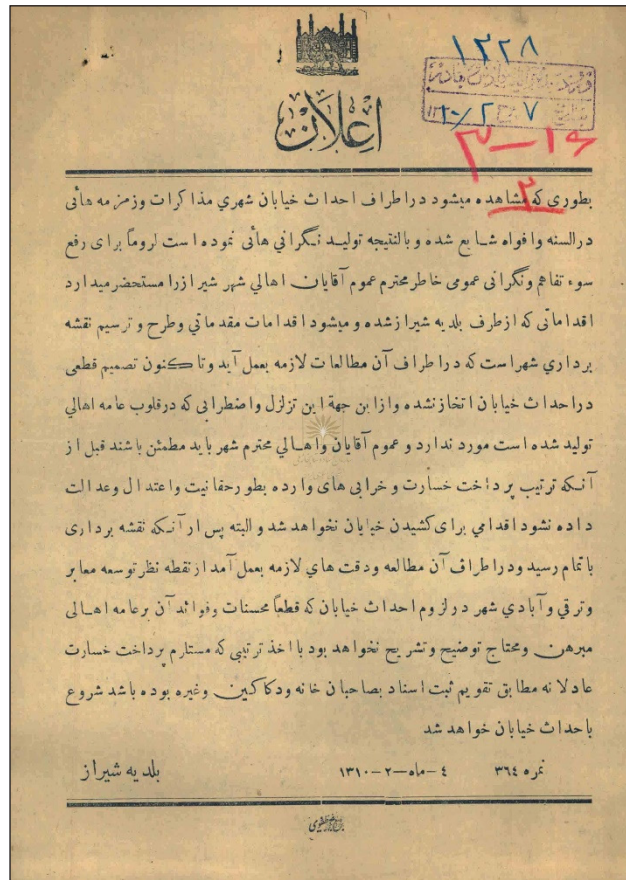 ۱۳۲۸
۷ ۲ ۱۳۱۰
۳-۱۶
۳
اعلان
بطوری که مشاهده میشود در اطراف احداث خیابان شهري مذاکرات وزمزمه هائی
در السنه وافواه شایع شده و بالنتیجه تولید نگرانی هائی نموده است لروماً برای رفع
سوء تفاهم ونگرانی عمومی خاطر محترم عموم آقایان اهالي شهر شیراز را مستحضر میدارد
اقداماتی که از طرف بلدیه شیراز شده و میشود اقدامات مقدماتي وطرح و ترسیم نقشه
برداري شهر است که در اطراف آن مطالعات لازمه بعمل آید و تا کنون تصمیم قطعی
در احداث خیابان اتخاز نشده و از این جهة این تزلزل و اضطرابی که در قلوب عامه اهالي
تولید شده است مورد ندارد و عموم آقایان و اهالي محترم شهر باید مطمئن باشند قبل از
آنکه ترتیب پرداخت خسارت و خرابی های وارده بطور حقانیت و اعتدال وعدالت
داده نشود اقدامي برای کشیدن خیابان نخواهد شد و البته پس ار آنکه نقشه برداری
باتمام رسید ودر اطراف آن مطالعه ودقت هاي لازمه بعمل آمد از نقطه نظر توسعه معابر
وترقي وآبادي شهر در لزوم احداث خیابان که قطعاً محسنات وفوائد آن برعامه اهالی
مبرهن ومحتاج توضیح وتشریح نخواهد بود با اخذ ترتیبی که مستلرم پرداخت خسارت
عادلانه مطابق تقویم ثبت اسناد بصاحبان خانه ودکاکین وغیره بوده باشد شروع
باحداث خیابان خواهد شد
نمره ۳٦٤ ٤-ماه-۲-۱۳۱۰ بلدیه شیراز